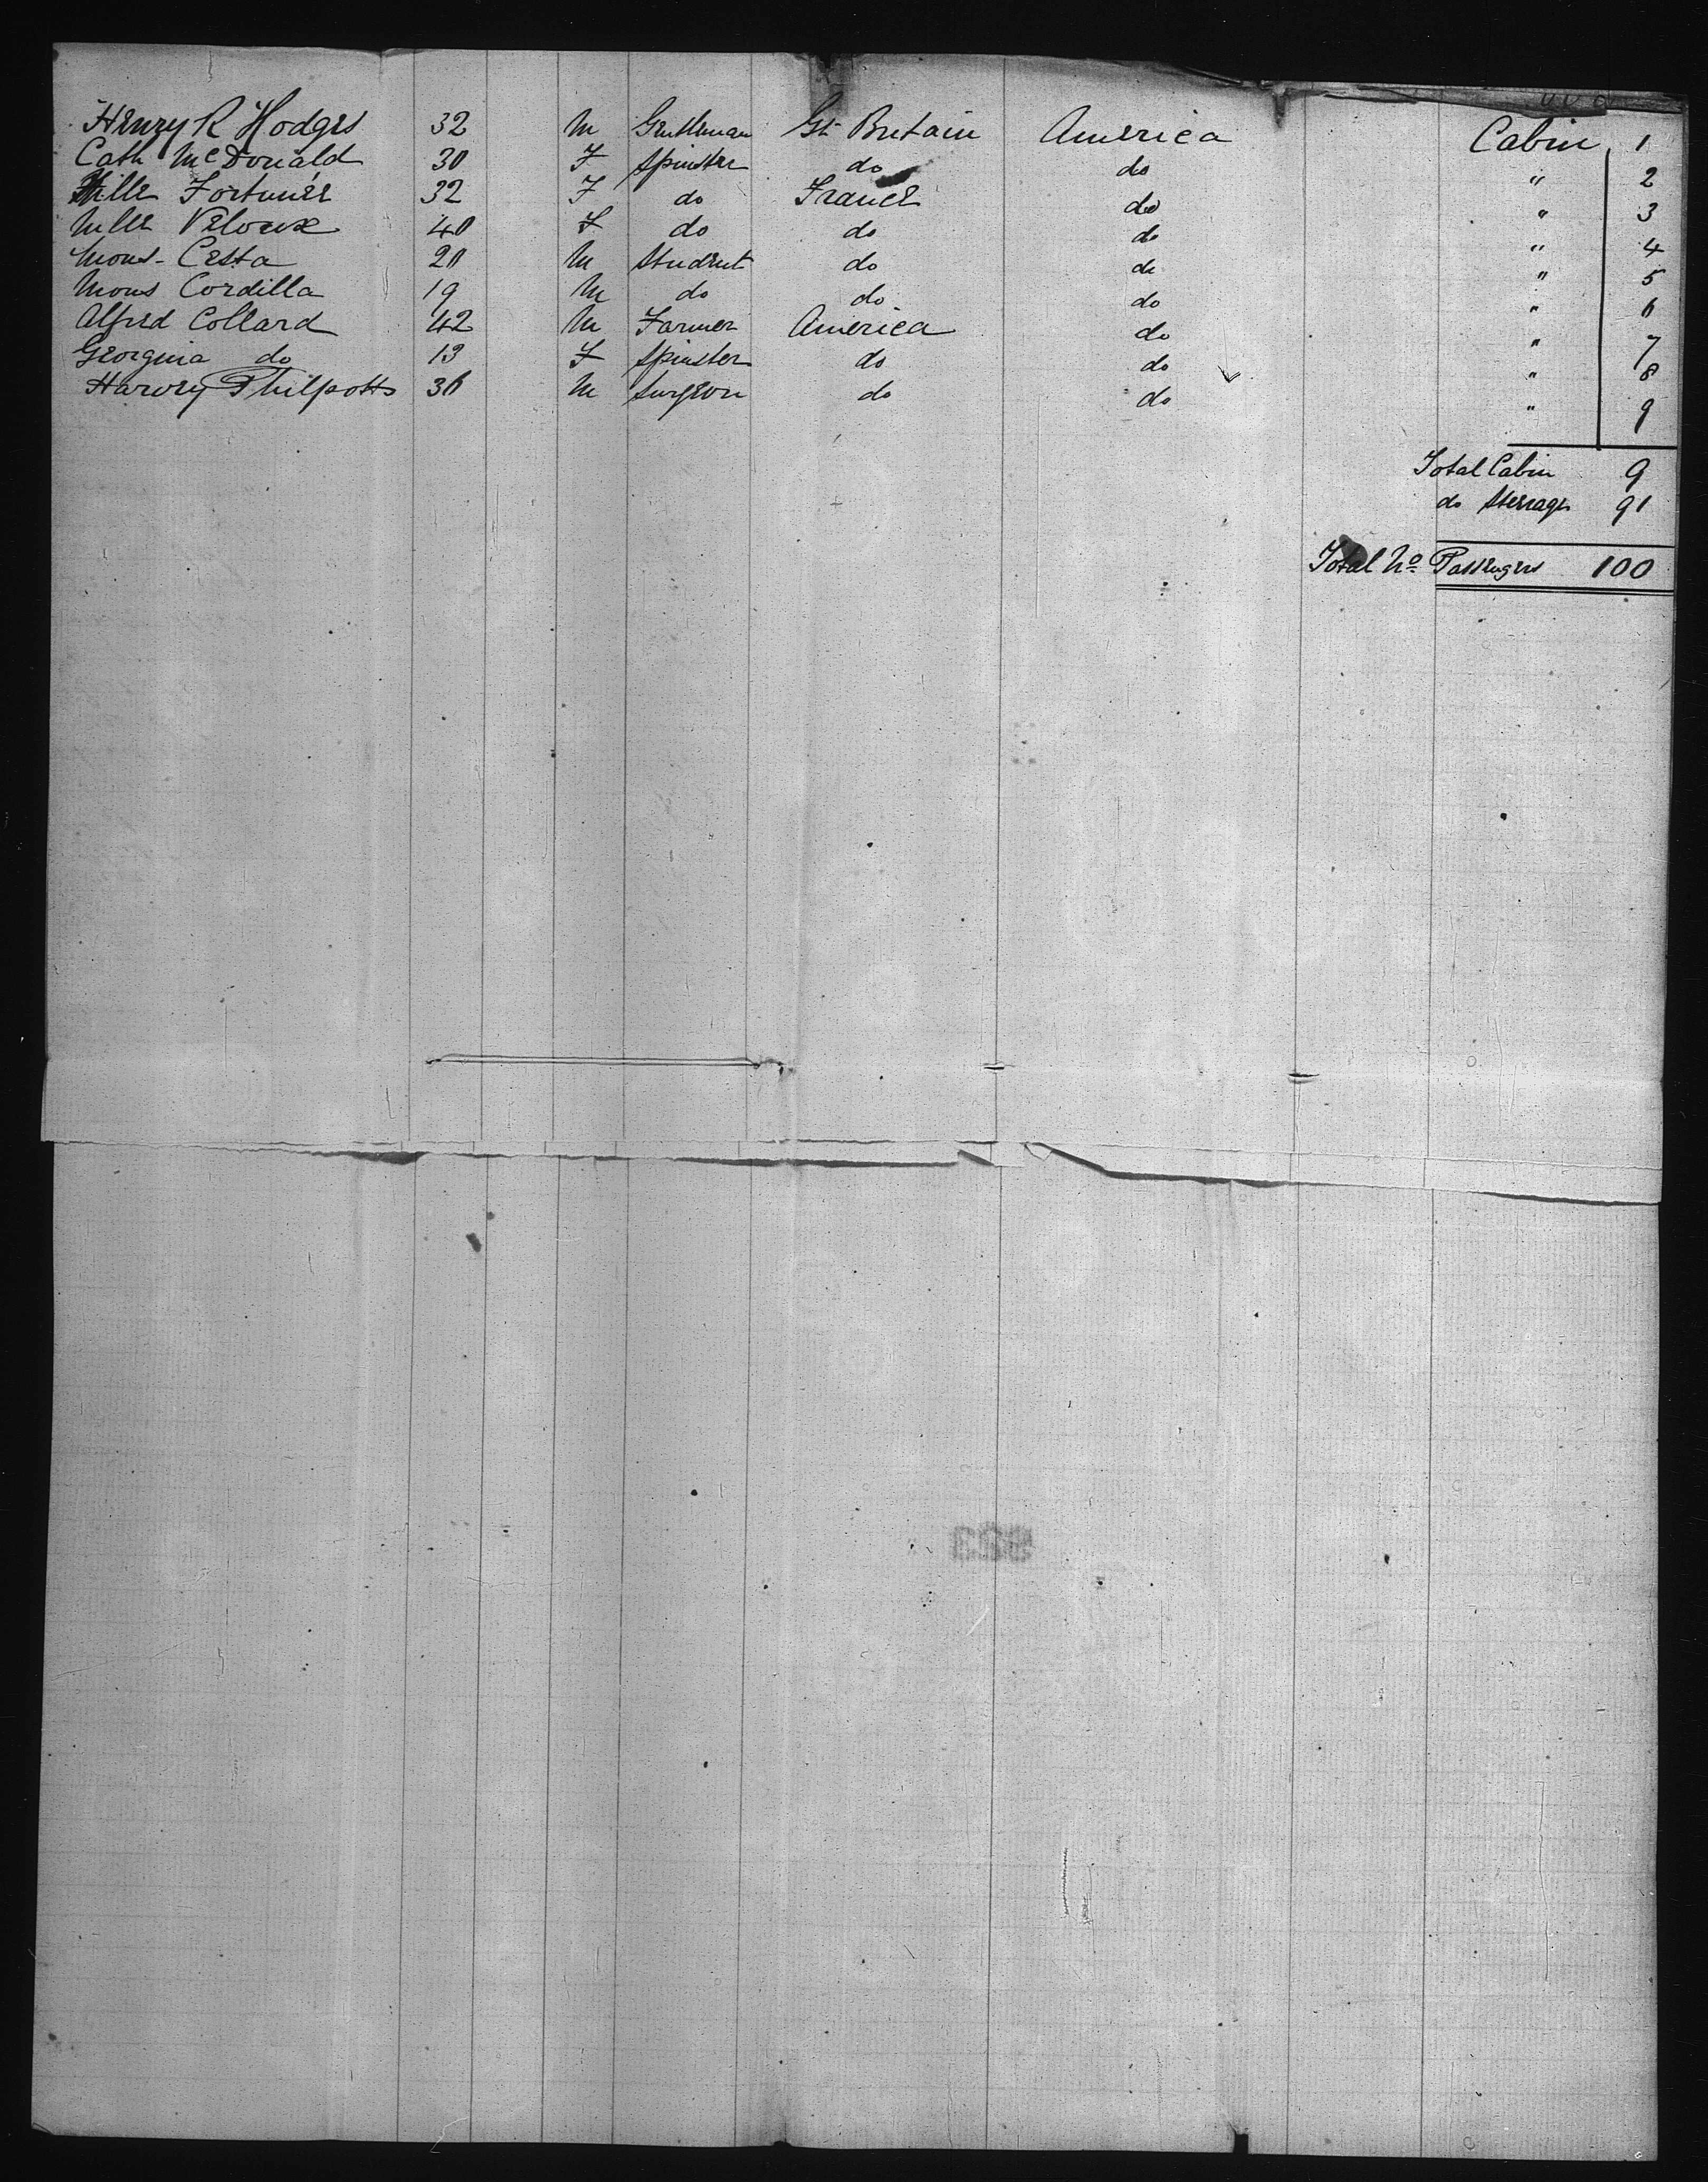 Henry R Hodges 32 M Gentleman Gt Britain America Cabin 1
Cath McDonald 30 F Spinster do do " 2
Mlle Fortunée 32 F do France do " 3
Mlle Veloux 40 F do do do " 4
Mons - Cesta 20 M Student do do " 5
Mons Cordilla 19 M do do do " 6
Alfred Collard 42 M Farmer America do " 7
Georgina do 13 F Spinster do do " 8
Harvey Philpotts 36 M Surgeon do do " 9
Total Cabin 9
do Steerage 91
Total No Passengers 100